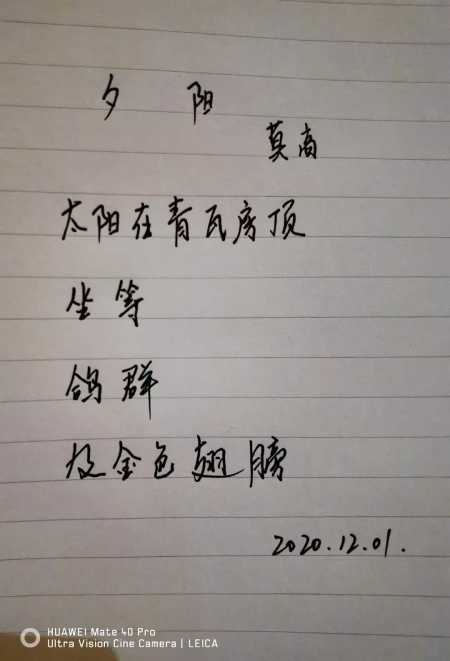 夕 阳
莫高
太阳在青瓦房顶
坐等
鸽群
及金色翅膀
2020.12.01.
HUAWEI Mate 40 Pro
Ultra Vision Cine Camera | LEICA